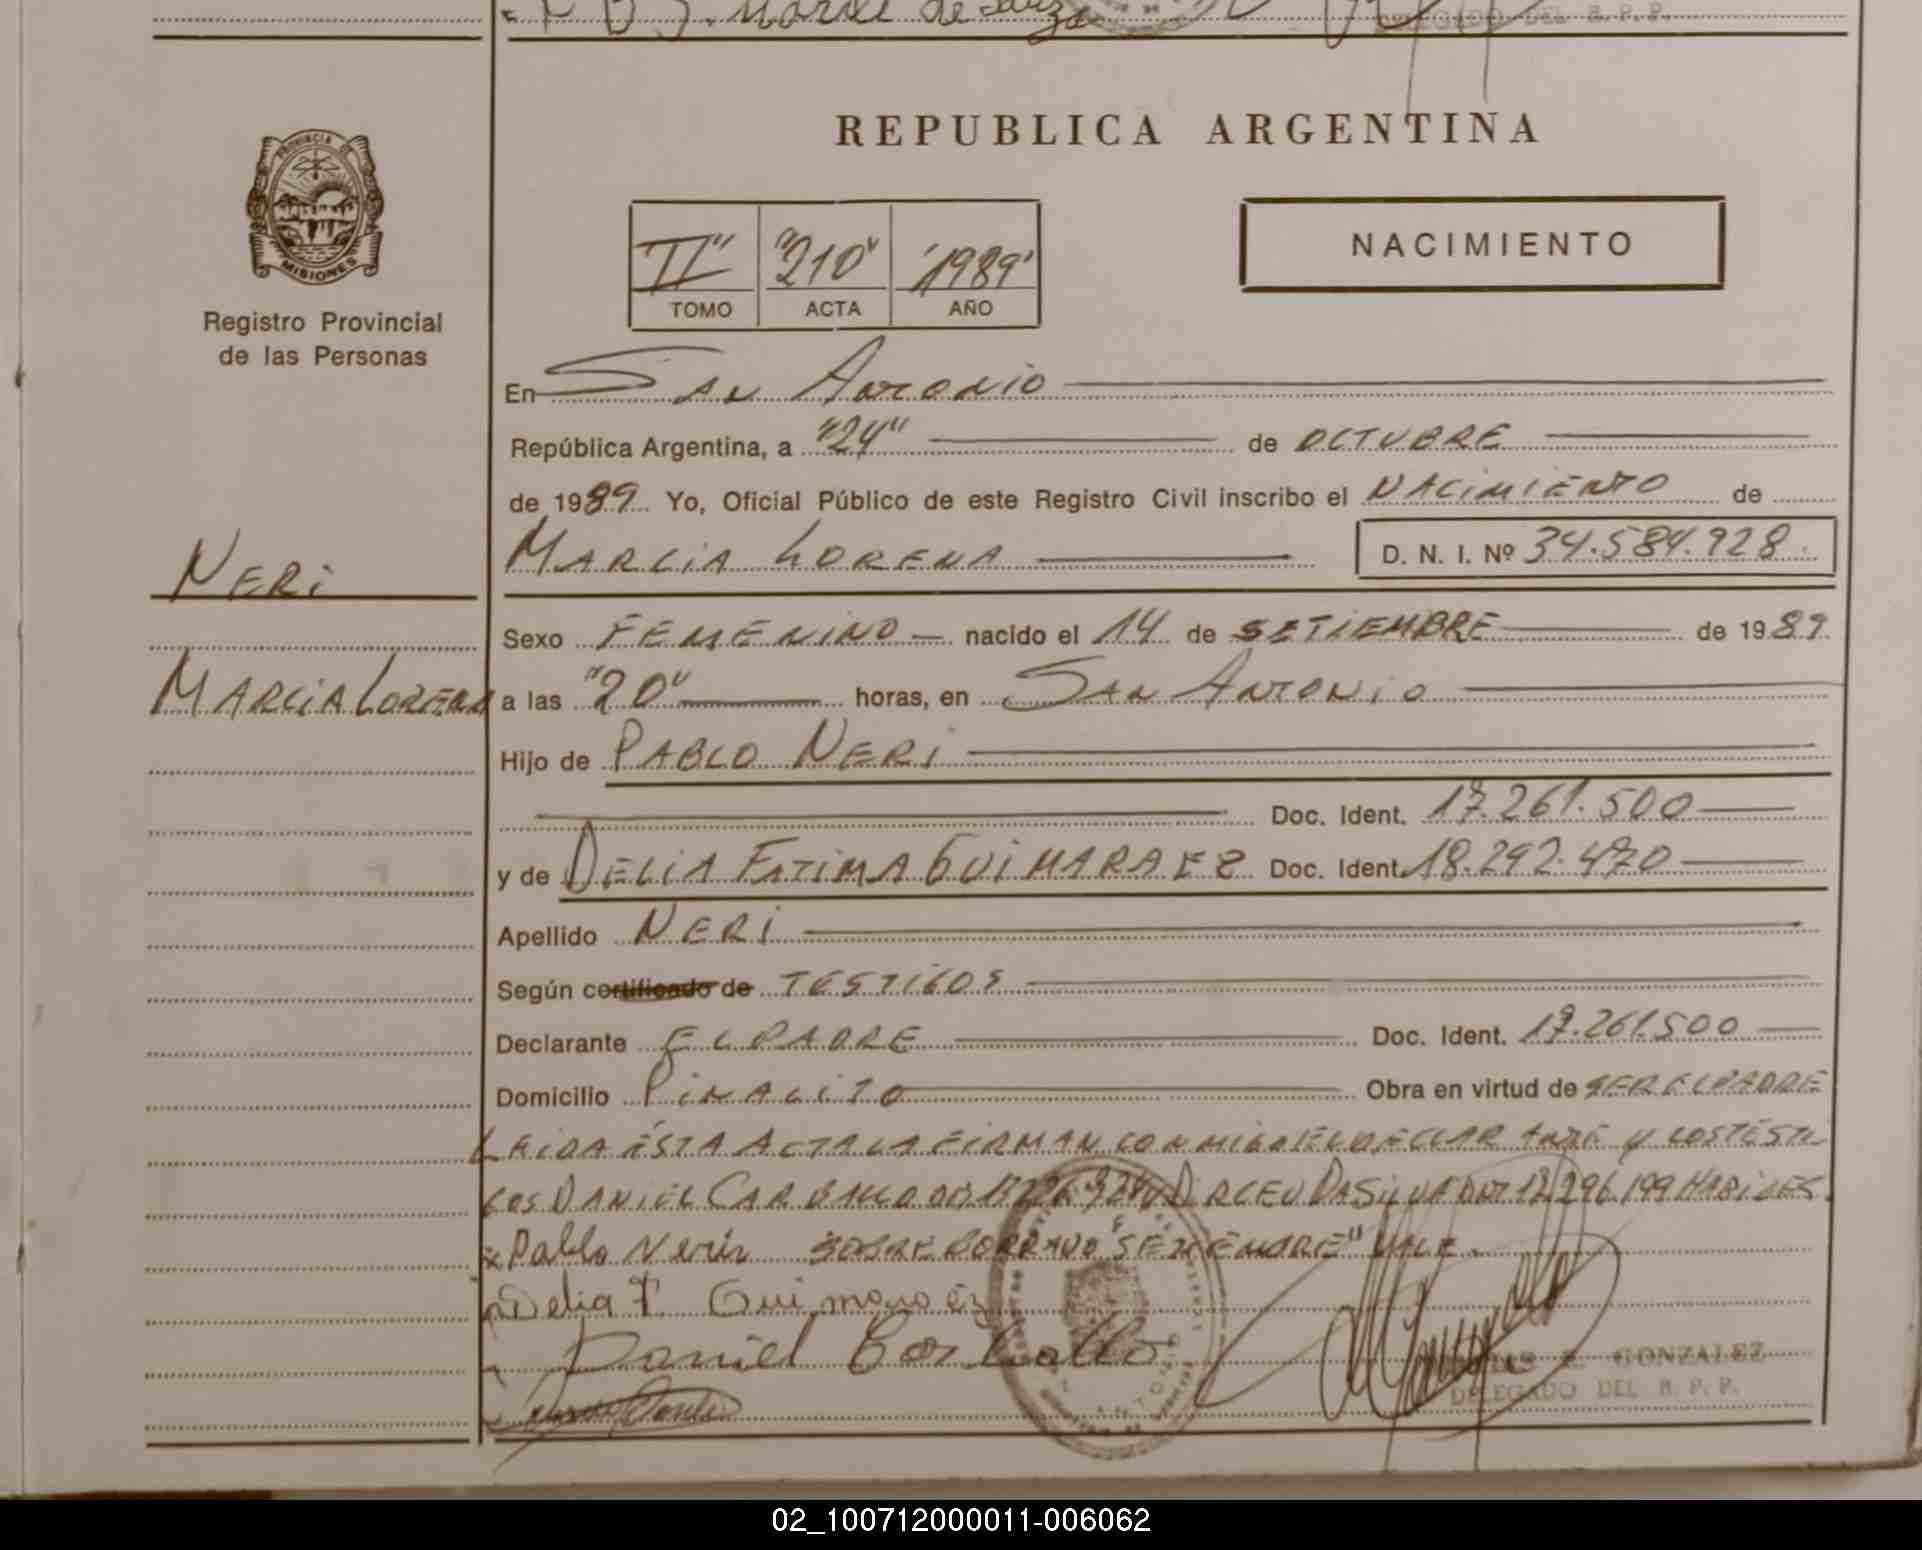 DELEGADO DEL R.P.P.
REPUBLICA ARGENTINA
PROVINCIA DE
MISIONES
Registro Provincial
de las Personas
"II" "210" '1989'
TOMO ACTA AÑO
NACIMIENTO
En San Antonio
República Argentina, a "24" de OCTUBRE
de 1989. Yo, Oficial Público de este Registro Civil inscribo el NACIMIENTO de
MARCIA LORENA D. N. I. Nº 34.584.928.
NERI
Sexo FEMENINO nacido el 14 de SETIEMBRE de 1989
MARCIA LORENA
a las "20" horas, en San Antonio
Hijo de PABLO NERI
Doc. Ident. 17.261.500
y de DELIA FATIMA GUIMARAEZ Doc. Ident. 18.292.470
Apellido NERI
Según certificado de TESTIGOS
Declarante EL PADRE Doc. Ident. 17.261.500
Domicilio PiNALiTO Obra en virtud de SER EL PADRE
LEIDA ESTA ACTA LA FIRMAN CONMIGO EL DECLARANTE Y LOS TESTI
GOS DANIEL CARBALLO DIRCEU DA SiLVA 12.296.199 HABILES.
Pablo Neriz SOBRE BORRADO "SETIEMBRE" VALE.
Delia F. Guimaraez
Daniel Carballo
GONZALEZ
DELEGADO DEL R.P.P.
02_100712000011-006062